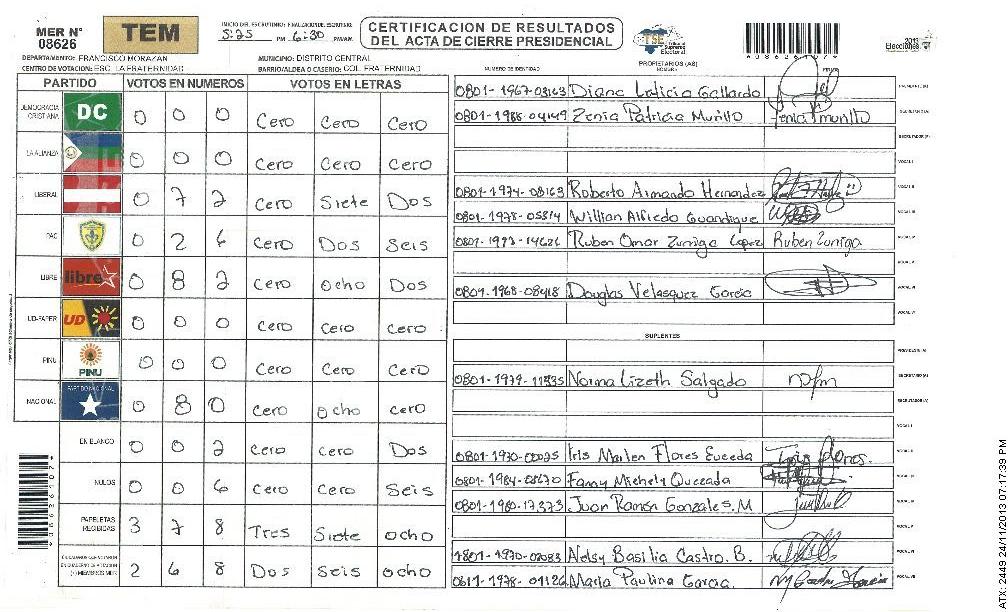 MER N° 08626
TEM
INICIO DEL ESCRUTINIO: FINALIZACION DEL ESCRUTINIO:
5:25 PM 6:30 PM/AM.
CERTIFICACION DE RESULTADOS
DEL ACTA DE CIERRE PRESIDENCIAL
TSE Tribunal Supremo Electoral
2013
Elecciones
DEPARTAMENTO: FRANCISCO MORAZAN
MUNICIPIO: DISTRITO CENTRAL
CENTRO DE VOTACION: ESC. LA FRATERNIDAD
BARRIO/ALDEA O CASERIO: COL. FRATERNIDAD
NUMERO DE IDENTIDAD
PROPIETARIOS (AS)
NOMBRE
FIRMA
PARTIDO VOTOS EN NUMEROS VOTOS EN LETRAS
DEMOCRACIA CRISTIANA DC 0 0 0 Cero Cero Cero
LA ALIANZA 0 0 0 Cero Cero Cero
LIBERAL 0 7 2 Cero Siete Dos
PAC 0 2 6 Cero Dos Seis
LIBRE libre 0 8 2 Cero ocho Dos
UD-FAPER UD 0 0 0 Cero Cero Cero
PINU PINU 0 0 0 Cero Cero Cero
NACIONAL PARTIDO NACIONAL 0 8 0 Cero ocho cero
EN BLANCO 0 0 2 Cero Cero Dos
NULOS 0 0 6 Cero Cero Seis
PAPELETAS RECIBIDAS 3 7 8 Tres Siete ocho
CIUDADANOS QUE VOTARON EN CUADERNO DE VOTACION (+) MIEMBROS MER 2 6 8 Dos Seis ocho
0801-1967-08163 Diana Leticia Gallardo
0801-1988-04149 Zenia Patricia Murillo
0801-1974-08163 Roberto Armando Hernandez
0801-1978-05814 Willian Alfredo Guandique
Ruben Omar Zuniga Lopez Ruben Zuniga
0801-1968-08418 Douglas Velasquez Garcia
SUPLENTES
0801-1979-11335 Norma Lizeth Salgado
Iris Marlen Flores Euceda
0801-1984-08670 Fanny Michely Quezada
0801-1980-17373 Juan Ramon Gonzales.M
1801-1970-02083 Nelsy Basilia Castro. B.
0611-1978-01126 Maria Paulina Garcia.
ATX: 2449 24/11/2013 07:17:39 PM